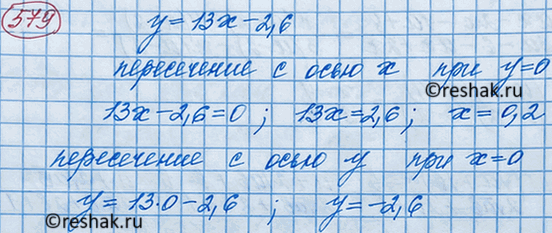 579
y = 13x - 2,6
пересечение с осью x при y=0
©reshak.ru
13x - 2,6 = 0 ; 13x = 2,6 ; x = 0,2
пересечение с осью y при x=0
y = 13·0 - 2,6 ; y = -2,6
©reshak.ru